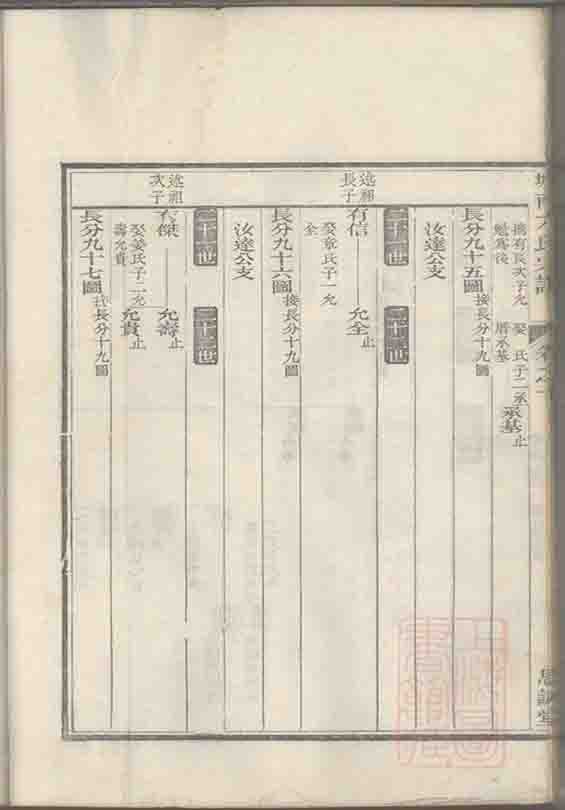 承基止
攜有長次子允
魁爲後
娶 氏子二承
厝承基
長分九十五圖 接長分十九圖
汝達公支
二十二世 二十三世
述祖長子
有信 允全止
娶章氏子一允
全
長分九十六圖 接長分十九圖
汝達公支
二十二世 二十三世
述祖次子
有傑 允壽止
娶姜氏子二允
壽允貴
允貴止
長分九十七圖 接長分十九圖